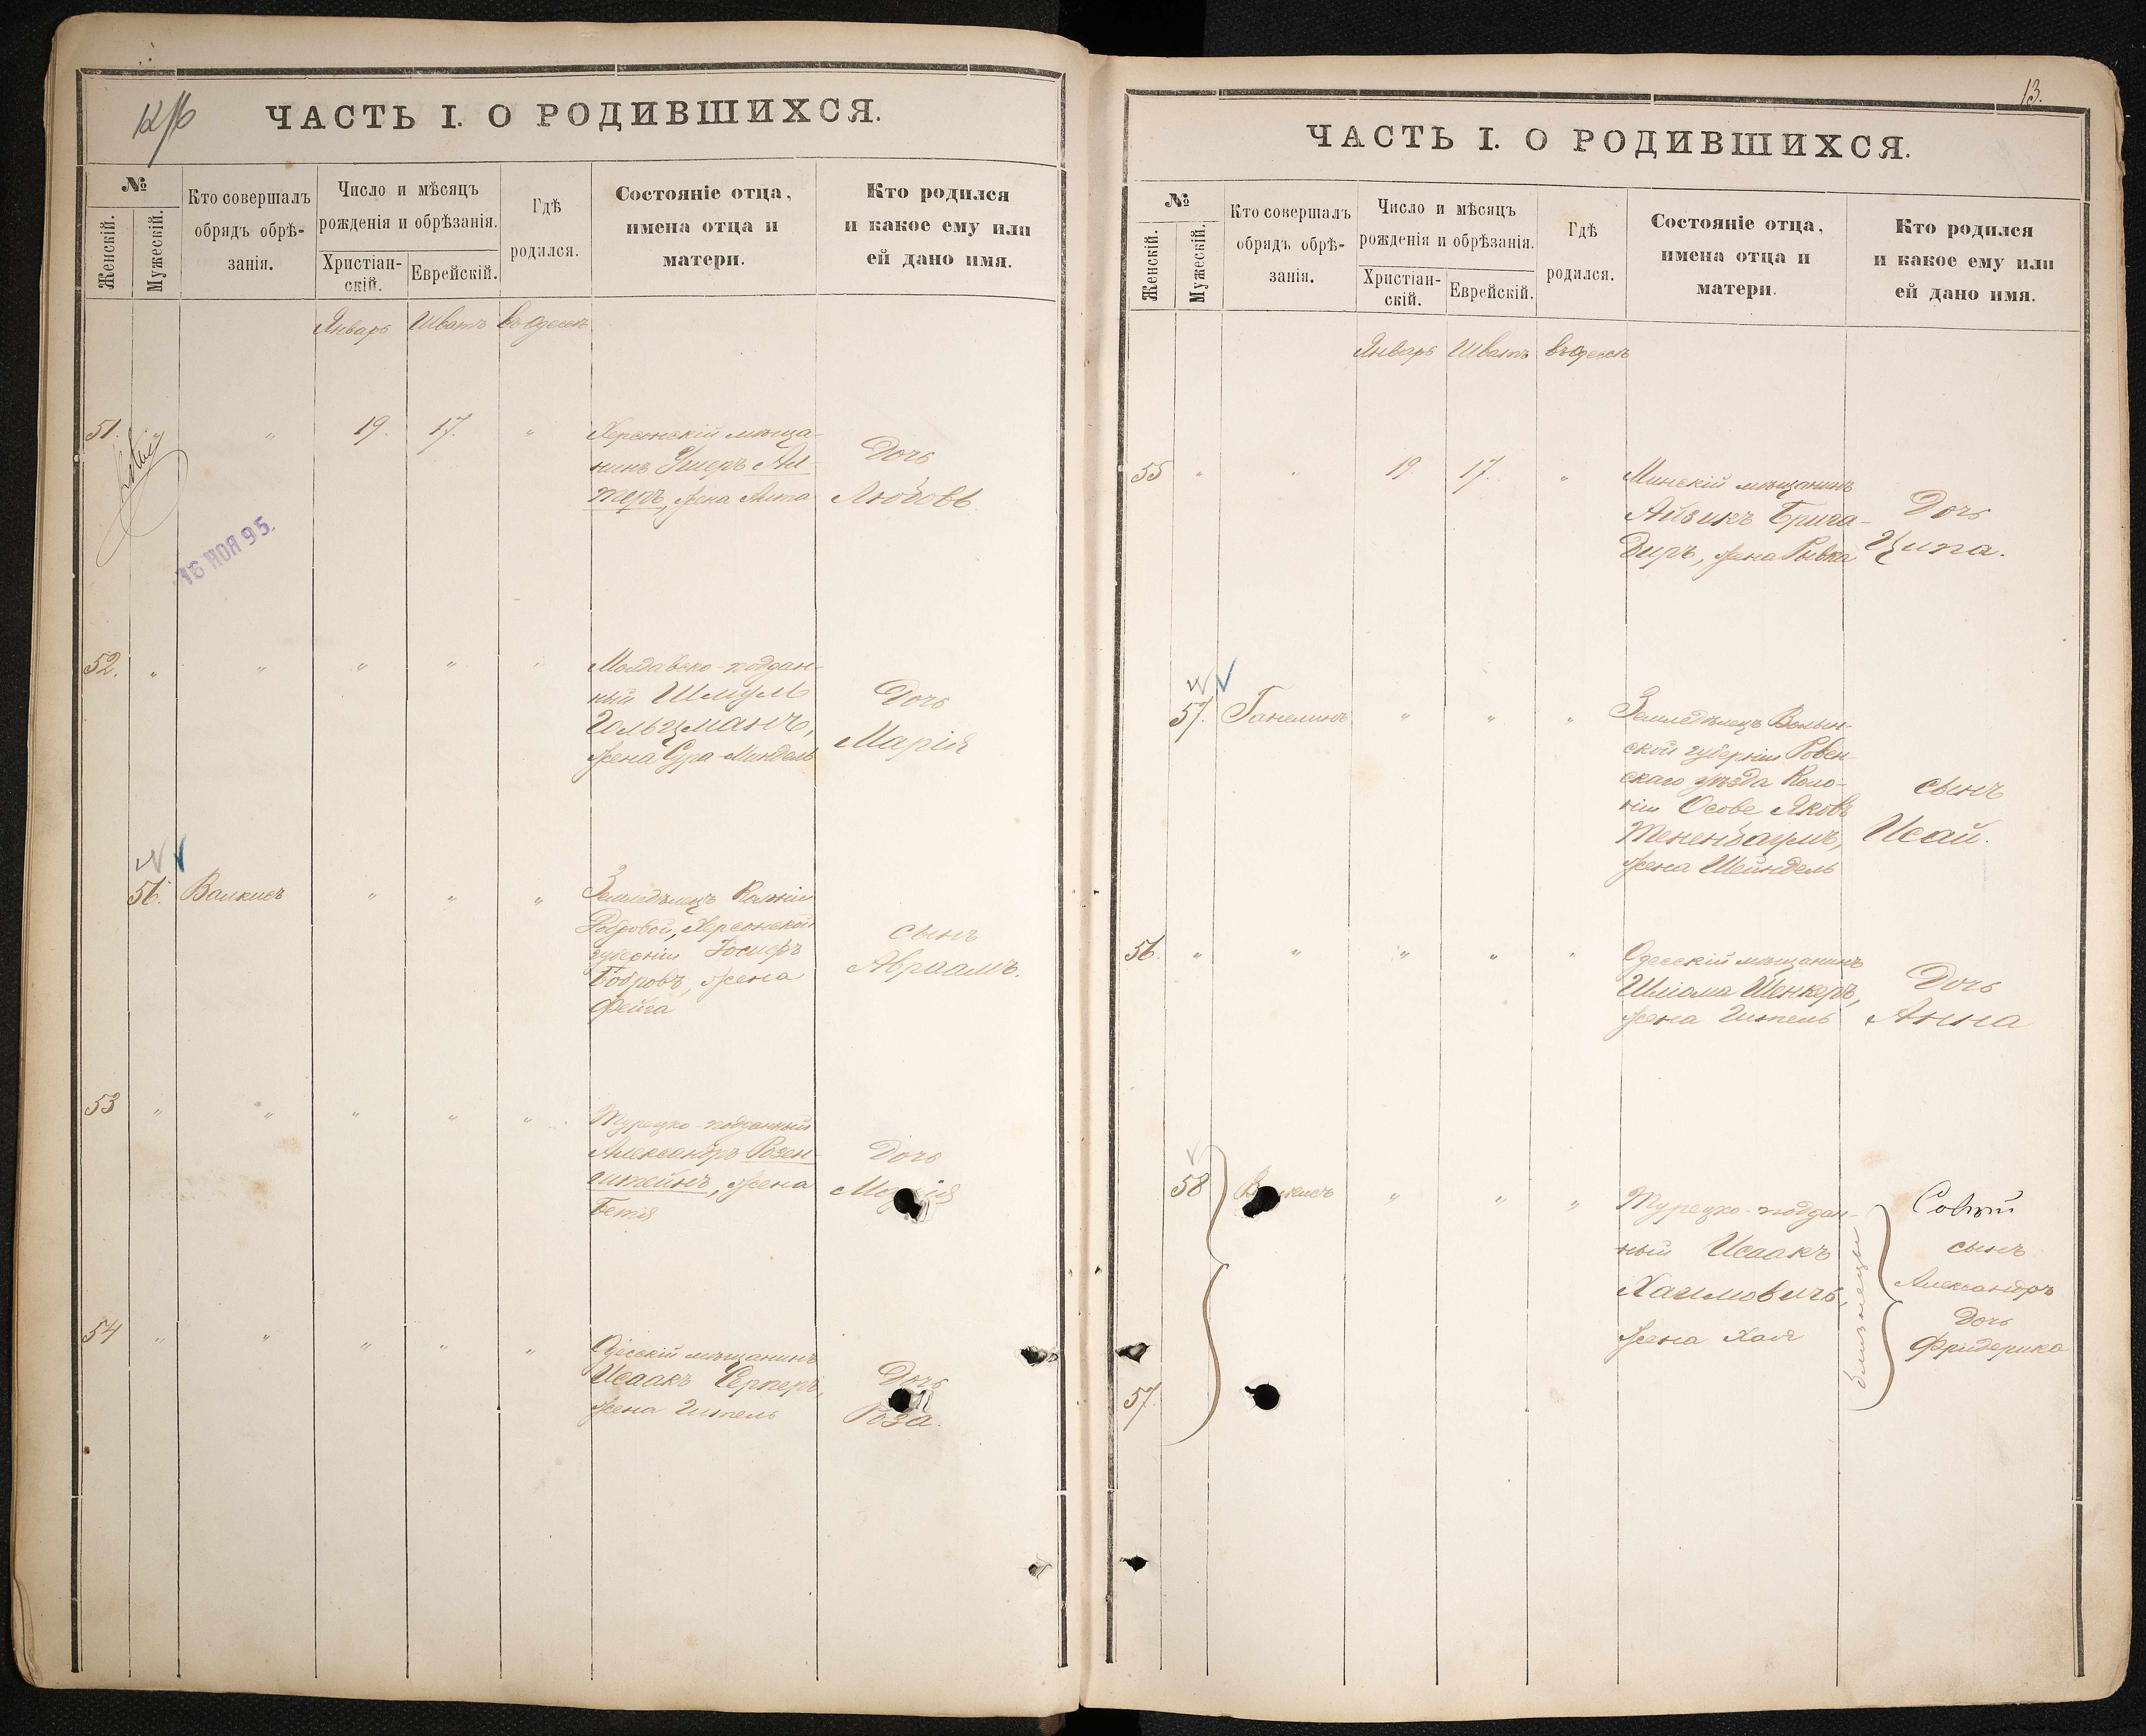 ЧАСТЬ I. О РОДИВШИХСЯ.
№
Женскій.
Мужескій.
Кто совершалъ
обрядъ обрѣ-
занія.
Число и мѣсяцъ
рожденія и обрѣзанія.
Христіан-
скій.
Еврейскій.
Гдѣ
родился.
Состояніе отца,
имена отца и
матери.
Кто родился
и какое ему или
ей дано имя.
Январь Шватъ въ Одессѣ
51. " " 19. 17. "
Херсонскій мѣща-
нинъ Ушеръ Ал-
теръ, жена Анта
Дочь
Любовь
16 НОЯ 95.
52. " " " " "
Молдавско-поддан-
ный Шмуль
Гольцманъ,
жена Сура-Миндель
Дочь
Марія
56. Валкисъ " " "
Земледѣлецъ Колоніи
Бобровой, Херсонской
губерніи Іосифъ
Бобровъ, жена
Фейга
сынъ
Авраамъ.
53 " " " " "
Турецко-подданный
Александръ Розен-
штейнъ, жена
Бетя
Дочь
54 " " " " "
Одесскій мѣщанинъ
Исаакъ Серперъ,
жена Гитель
Дочь
Роза.
13.
ЧАСТЬ I. О РОДИВШИХСЯ.
№
Женскій.
Мужескій.
Кто совершалъ
обрядъ обрѣ-
занія.
Число и мѣсяцъ
рожденія и обрѣзанія.
Христіан-
скій.
Еврейскій.
Гдѣ
родился.
Состояніе отца,
имена отца и
матери.
Кто родился
и какое ему или
ей дано имя.
Январь Шватъ въ Одессѣ
55 " " 19. 17. "
Минскій мѣщанинъ
Айзикъ Брига-
диръ, жена Рывка
Дочь
Ципа.
57. Ганелинъ " " "
Земледѣлецъ Волын-
ской губерніи Ровен-
скаго уѣзда Коло-
ніи Осове Яковъ
Тененбаумъ,
жена Шейндель
сынъ
Исай.
56. " " " " "
Одесскій мѣщанинъ
Шліома Шенкеръ,
жена Гитель
Дочь
Анна
58 " " "
Турецко-поддан-
ный Исаакъ
Хаимовичъ,
жена Хая
близнецы
сынъ
Александръ
Дочь
Фридерика
57.